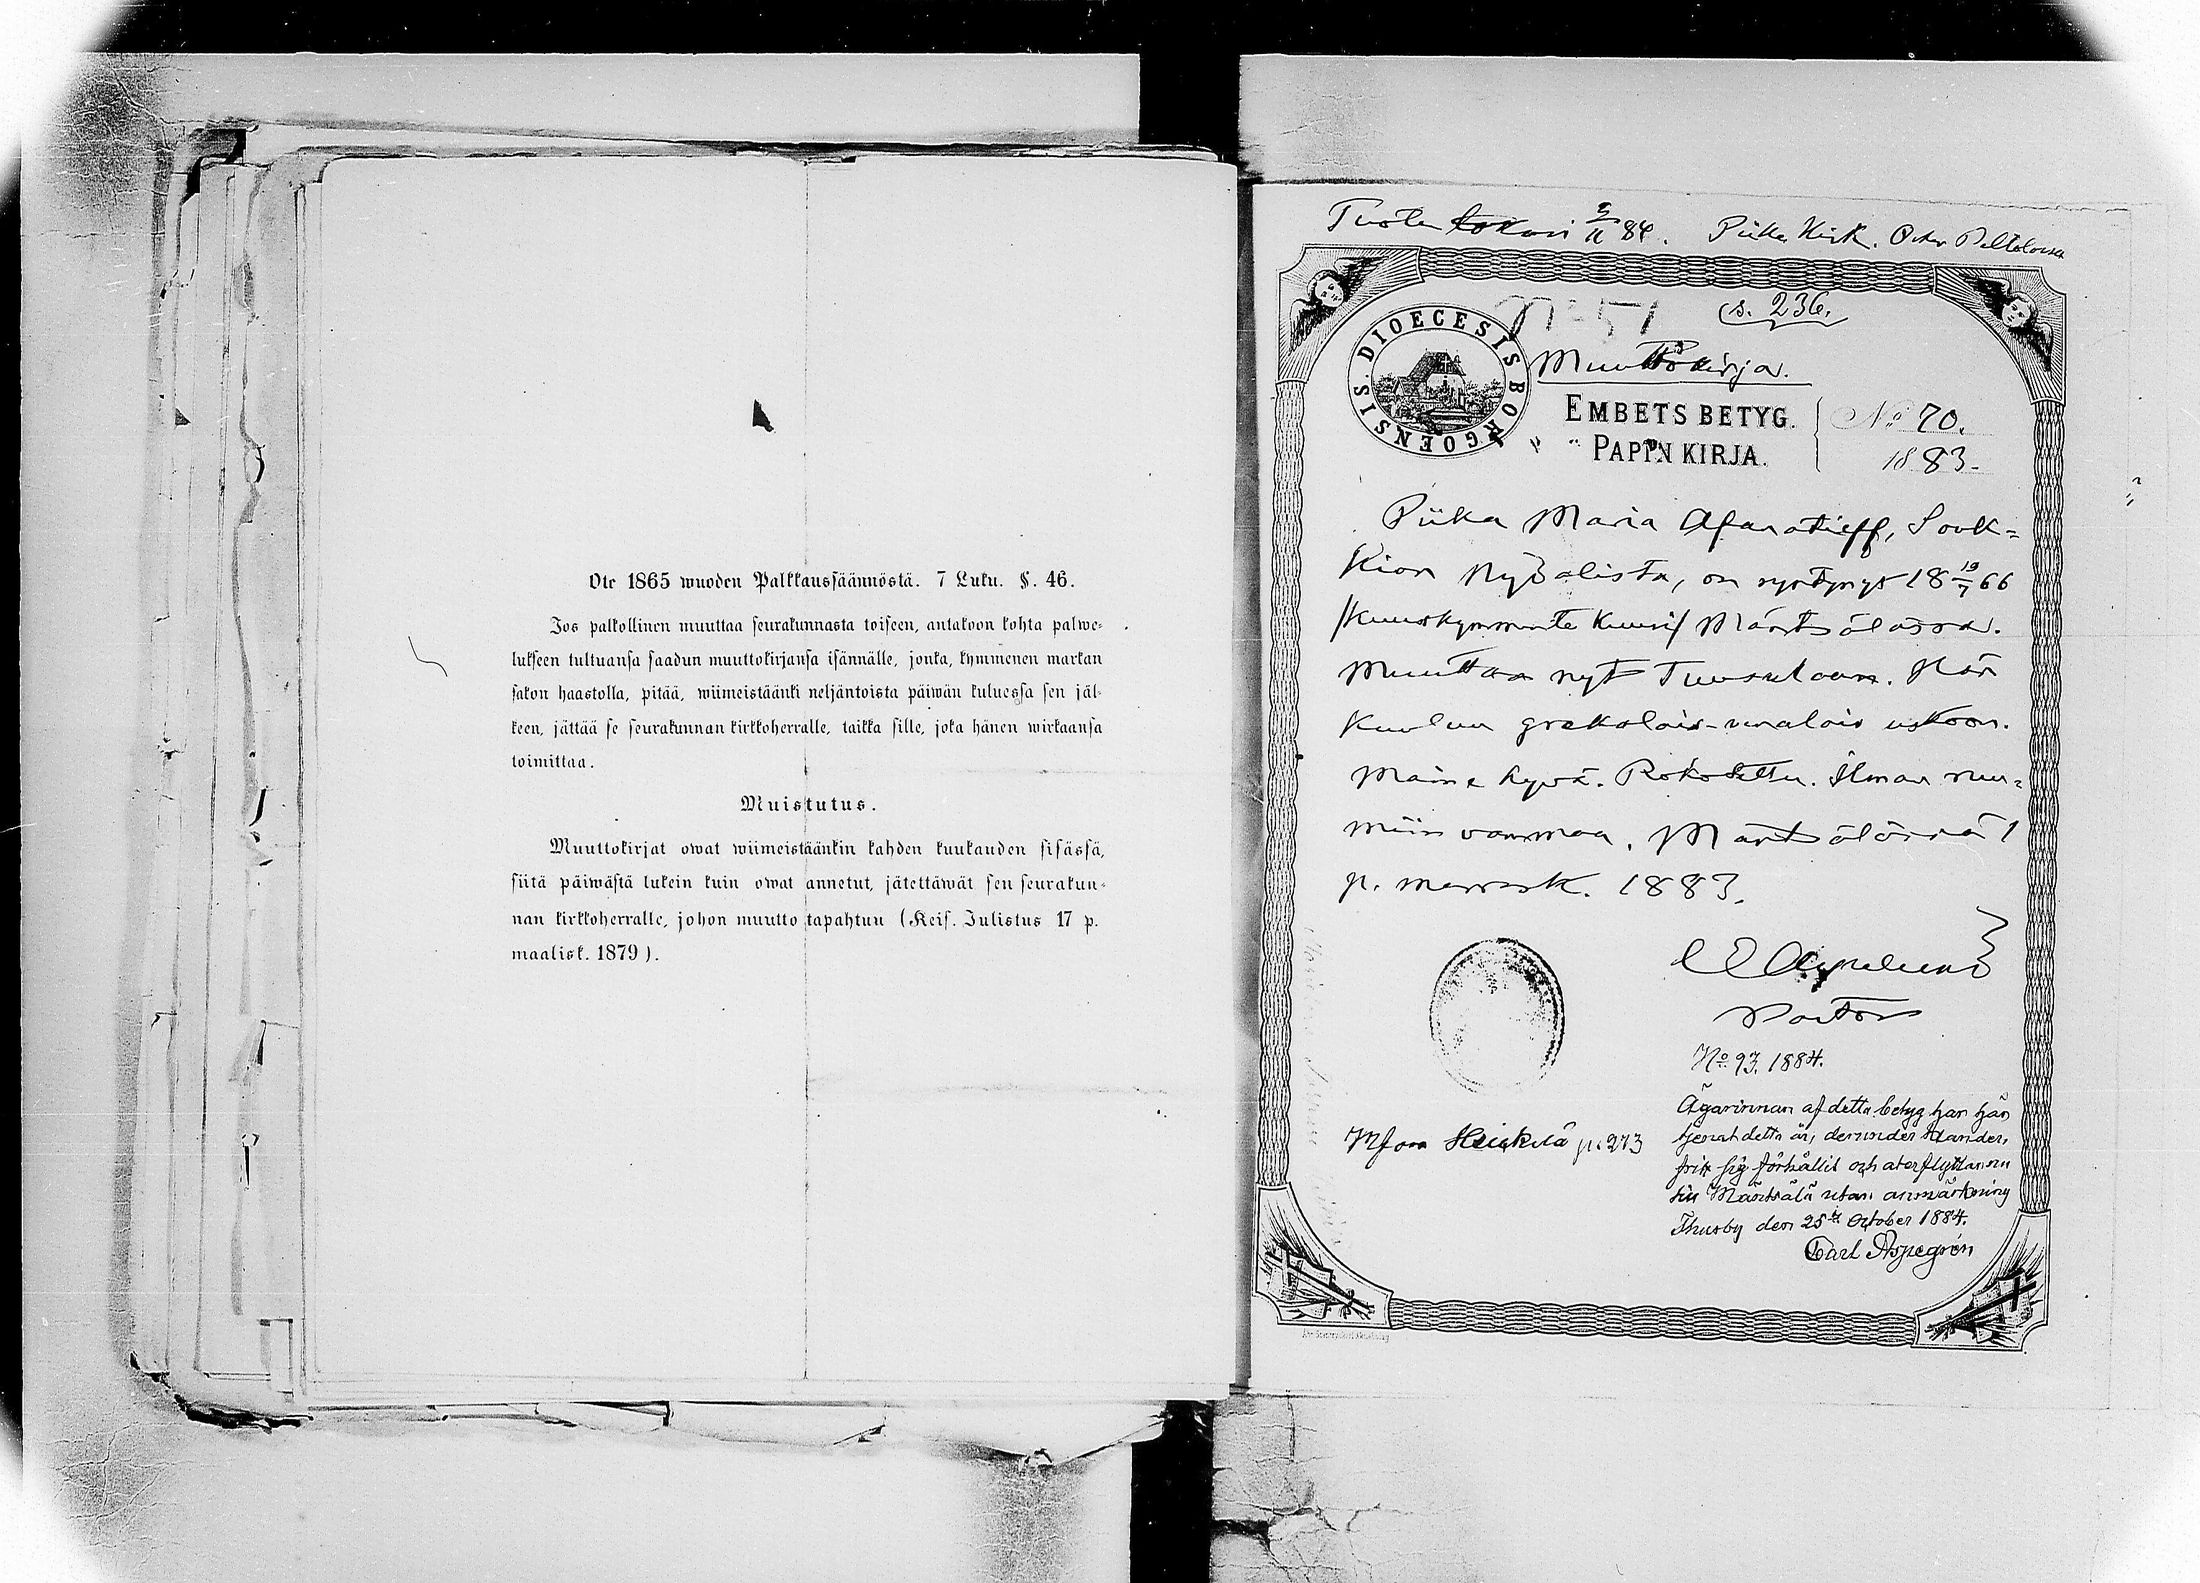 Ote 1865 wuoden Palkkaussäännöstä. 7 Luku. §. 46.
Jos palkollinen muuttaa seurakunnasta toiseen, antakoon kohta palwe-
lukseen tultuansa saadun muuttokirjansa isännälle, jonka, kymmenen markan
sakon haastolla, pitää, wiimeistäänki neljäntoista päiwän kuluessa sen jäl-
keen, jättää se seurakunnan kirkkoherralle, taikka sille, joka hänen wirkaansa
toimittaa.
Muistutus.
Muuttokirjat owat wiimeistäänkin kahden kuukauden sisässä,
siitä päiwästä lukein kuin owat annetut, jätettäwät sen seurakun-
nan kirkkoherralle, johon muutto tapahtuu (Keis. Julistus 17 p.
maalisk. 1879).
Tuotu 5/11 84. Piika Kirk.
No 51 s. 236.
DIOECESIS BORGOENSIS.
Muuttokirja.
EMBETS BETYG. No 70.
PAPIN KIRJA. 1883.
Piika Maria Afanatieff, Souk-
kion Nybölistä, on syntynyt 18 19/7 66
/kuuskymmentä kuusi/ Mäntsälässä.
Muuttaa nyt Tuusulaan. Hän
kuuluu grekalais-venalais uskoon.
Maine hyvä. Rokotettu. Ilman ruu-
miin vammaa. Mäntsälässä 1
p. marrask. 1883.
Pastor
No 93. 1884.
Ägarinnan af detta betyg har här
tjenat detta år, derunder klander-
fritt sig förhållit och återflyttar nu
till Mäntsälä utan anmärkning
Thusby den 25te October 1884.
Carl Aspegrén
p. 273